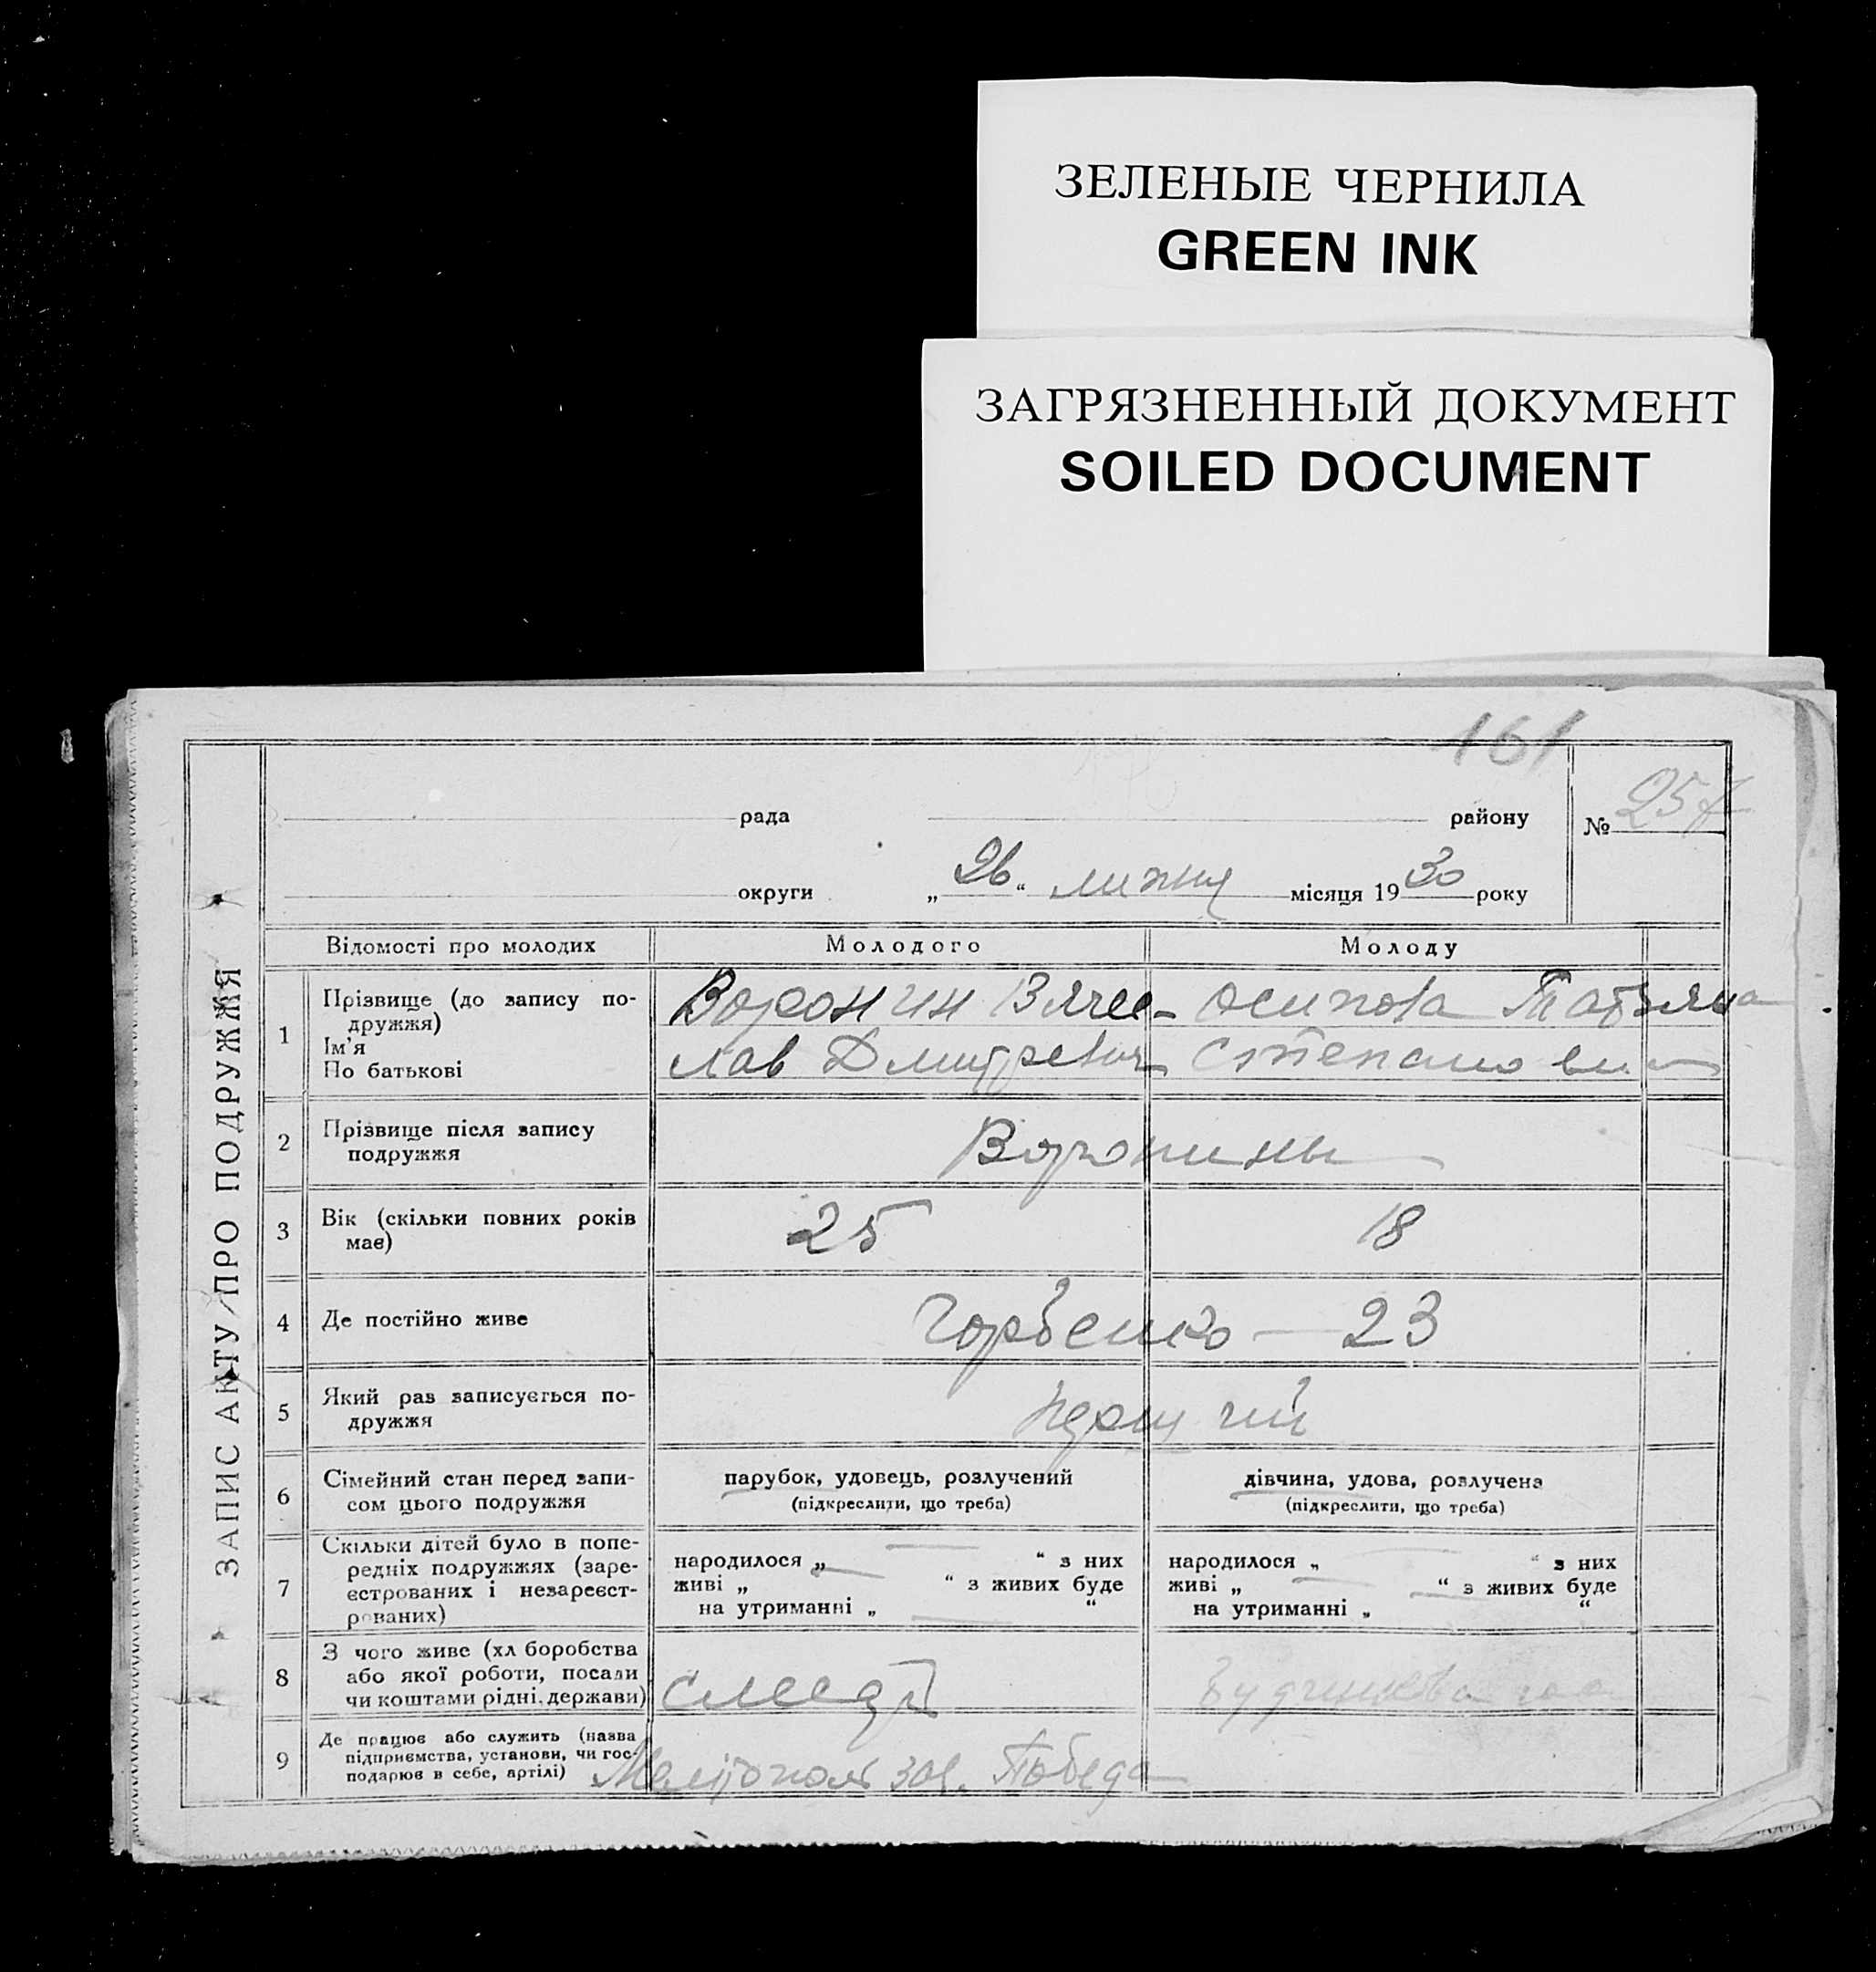 ЗЕЛЕНЫЕ ЧЕРНИЛА
GREEN INK
ЗАГРЯЗНЕННЫЙ ДОКУМЕНТ
SOILED DOCUMENT
161
рада району №
округи „26“ липня місяця 1930 року
ЗАПИС АКТУ ПРО ПОДРУЖЖЯ
Відомості про молодих Молодого Молоду
1 Прізвище (до запису по-
дружжя)
Ім'я
По батькові
Воронин Вячес-
лав Дмитревич
Осипова Татьяна
Степановна
2 Прізвище після запису
подружжя
Воронины
3 Вік (скільки повних років
має)
25 18
4 Де постійно живе
Горбенко — 23
5 Який раз записується по-
дружжя
6 Сімейний стан перед запи-
сом цього подружжя
парубок, удовець, розлучений
(підкреслити, що треба)
дівчина, удова, розлучена
(підкреслити, що треба)
7 Скільки дітей було в попе-
редніх подружжях (заре-
єстрованих і незареєст-
рованих)
народилося „ “ з них
живі „ “ з живих буде
на утриманні „ “
народилося „ “ з них
живі „ “ з живих буде
на утриманні „ “
8 З чого живе (хліборобства
або якої роботи, посади
чи коштами рідні, держави)
9 Де працює або служить (назва
підприємства, установи, чи гос-
подарює в себе, артілі)
зав. Победа